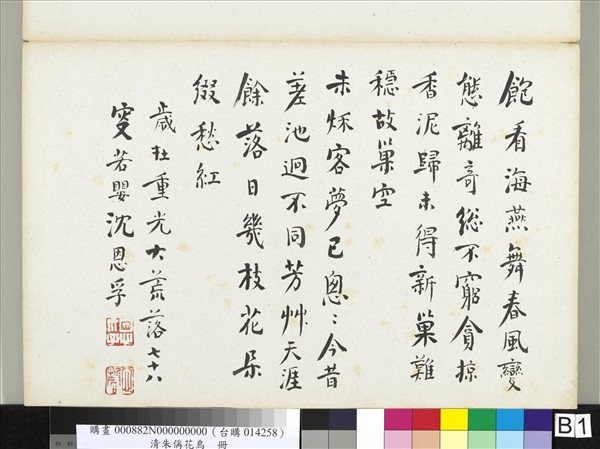 飽看海燕舞春風變
態離奇總不窮貪掠
香泥歸未得新巢難
穩故巢空
未穌客夢已悤〻今昔
差池迥不同芳艸天涯
餘落日幾枝花朵
綴愁紅
歲在重光大荒落七十八
叟若嬰沈恩孚
購畫 000882N000000000 (台購 014258)
清朱偁花鳥 冊
B 1